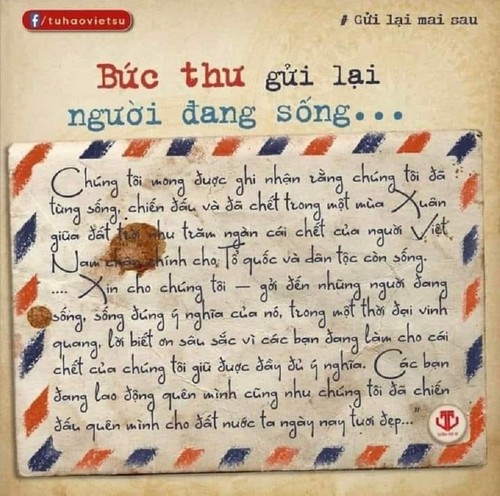 f/tuhaovietsu
# Gửi lại mai sau
Bức thư gửi lại
người đang sống...
Chúng tôi mong được ghi nhận rằng chúng tôi đã
từng sống, chiến đấu và đã chết trong một mùa Xuân
giữa đất trời như trăm ngàn cái chết của người Việt
Nam chân chính cho Tổ quốc và dân tộc còn sống.
.... Xin cho chúng tôi – gởi đến những người đang
sống, sống đúng ý nghĩa của nó, trong một thời đại vinh
quang, lời biết ơn sâu sắc vì các bạn đang làm cho cái
chết của chúng tôi giữ được đầy đủ ý nghĩa. Các bạn
đang lao động quên mình cũng như chúng tôi đã chiến
đấu quên mình cho đất nước ta ngày nay tươi đẹp..."